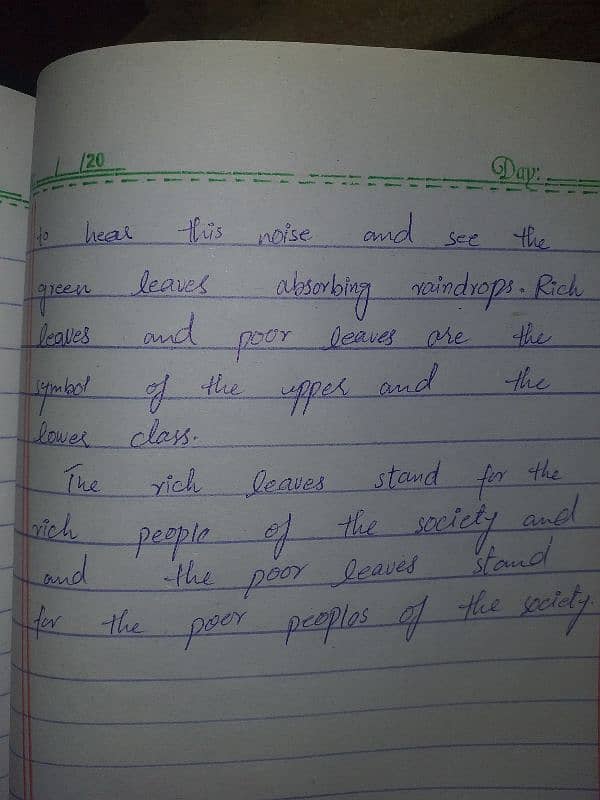 / /20
Day:
to hear this noise and see the
green leaves absorbing raindrops. Rich
leaves and poor leaves are the
symbol of the upper and the
lower class.
The rich leaves stand for the
rich people of the society and
and the poor leaves stand
for the poor peoples of the society.